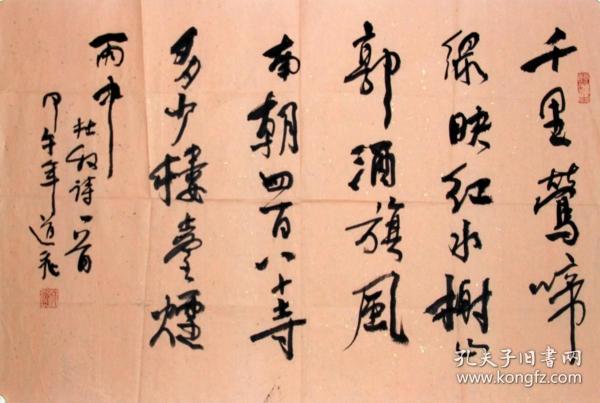 千里鶯啼
绿映红水榭山
郭酒旗風
南朝四百八十寺
多少樓臺煙
雨中
杜牧诗一首
甲午年道
孔夫子旧书网
www.kongfz.com